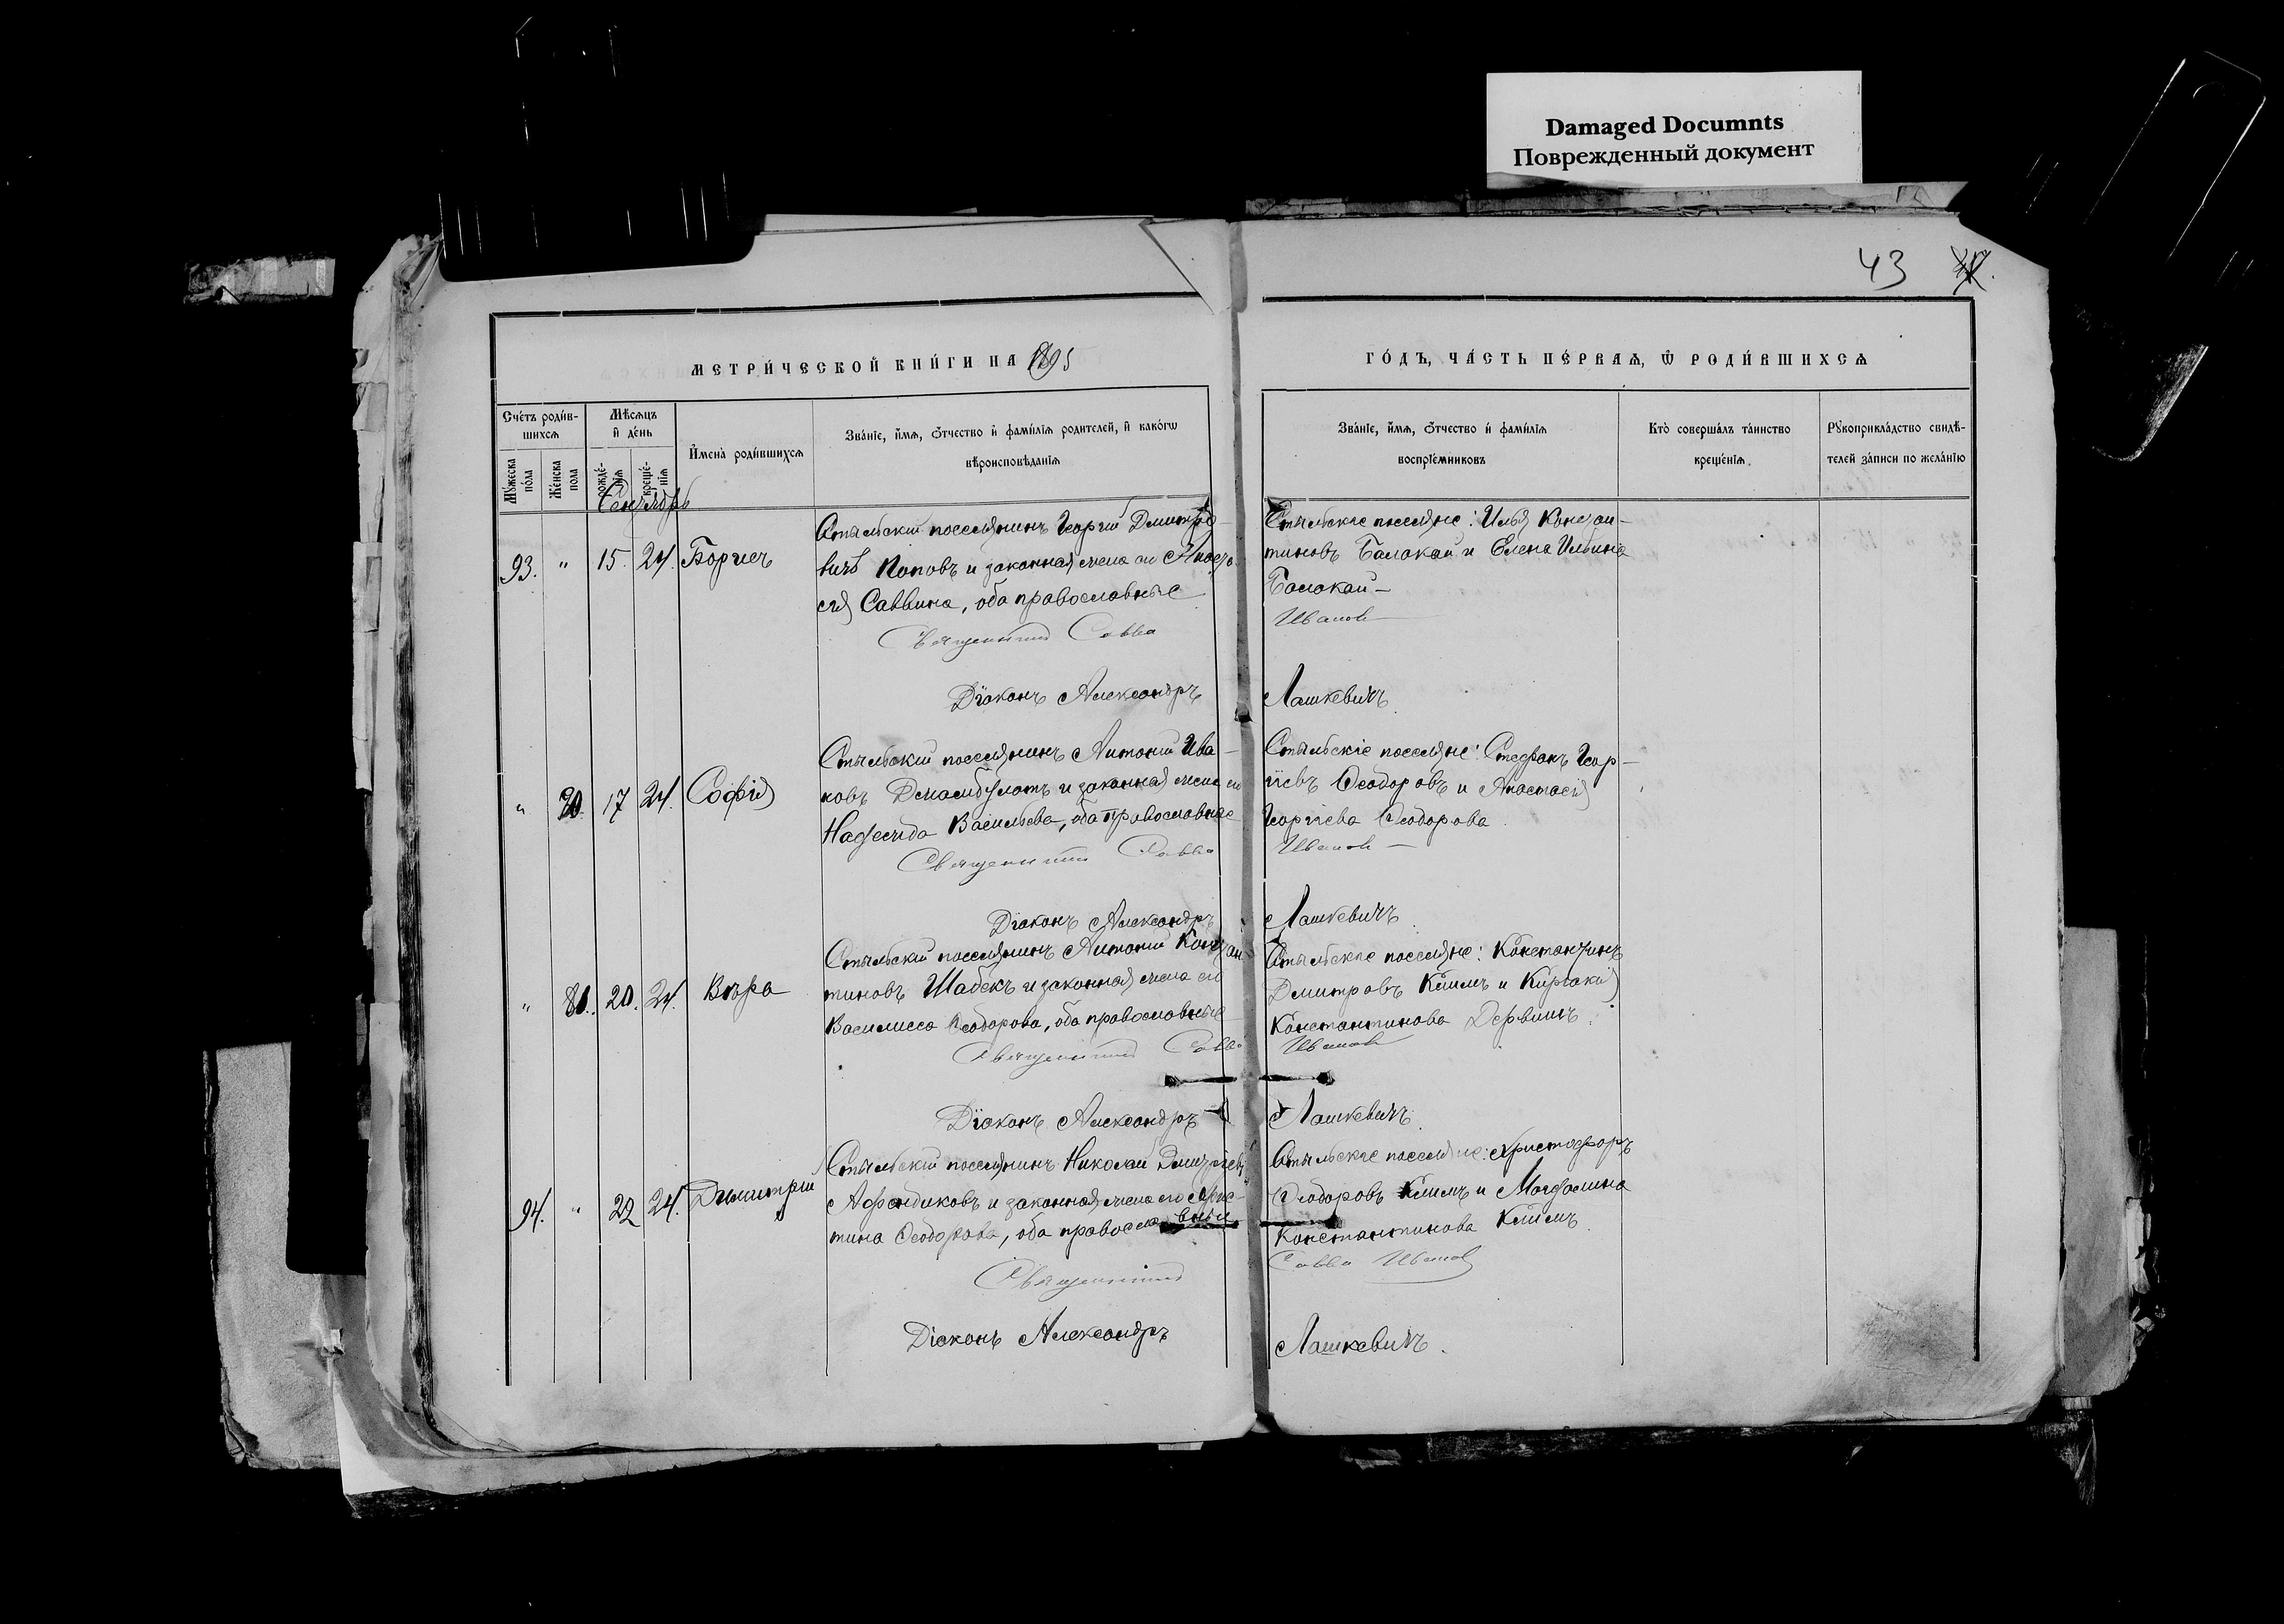 Damaged Documnts
Поврежденный документ
43
МЕТРИ́ЧЕСКОЙ КНИ́ГИ НА 1895
ГО́ДЪ, ЧА́СТЬ ПЕ́РВАѦ, Ѿ РОДИ́ВШИХСѦ
Сче́тъ роди́в-
шихсѧ
Мꙋ́жеска по́ла
Же́нска пола
Мѣ́сѧцъ
и҆ де́нь
рожде́-
нїѧ
креще́-
нїѧ
И҆мена̀ роди́вшихсѧ
Зва́нїе, и҆́мѧ, ѻ҆́тчество и҆ фами́лїѧ родителей, и҆ како́гѡ
вѣроисповѣ́данїѧ
Зва́нїе, и҆́мѧ, ѻ҆́тчество и҆ фами́лїѧ
воспрїе́мниковъ
Кто̀ соверша́лъ та́инство
креще́нїѧ
Рꙋкоприкла́дство свидѣ́-
телей за́писи по жела́нїю
Сентябрь
93. " 15. 24. Борисъ
Стыльскій поселянинъ Георгій Дмитріе-
вичъ Поповъ и законная жена его Анаста-
сія Саввина, оба православные
Стыльскіе поселяне: Илья Констан-
тиновъ Балакай и Елена Ильина
Балакай —
Священникъ Савва Ивановъ
Діаконъ Александръ Лашкевичъ
" 17 24. Софія
Стыльскій поселянинъ Антоній Ива-
новъ Джамбулатъ и законная жена его
Надежда Васильева, оба православные
Стыльскіе поселяне: Стефанъ Геор-
гіевъ Ѳеодоровъ и Анастасія
Георгіева Ѳеодорова
Священникъ Савва Ивановъ
Діаконъ Александръ Лашкевичъ.
" 81. 20. 24. Вѣра
Стыльскій поселянинъ Антоній Констан-
тиновъ Шабекъ и законная жена его
Василисса Ѳеодорова, оба православные
Стыльскіе поселяне: Константинъ
Дмитровъ Кіимъ и Киріакія
Константинова Дервишъ.
Священникъ Савва Ивановъ
Діаконъ Александръ Лашкевичъ.
94. " 22 24. Димитрій
Стыльскій поселянинъ Николай Дмитріевъ
Афендиковъ и законная жена его Хрис-
тина Ѳеодорова, оба православные
Стыльскіе поселяне: Христофоръ
Ѳеодоровъ Кіимъ и Магдалина
Константинова Кіимъ.
Священникъ Савва Ивановъ
Діаконъ Александръ Лашкевичъ.